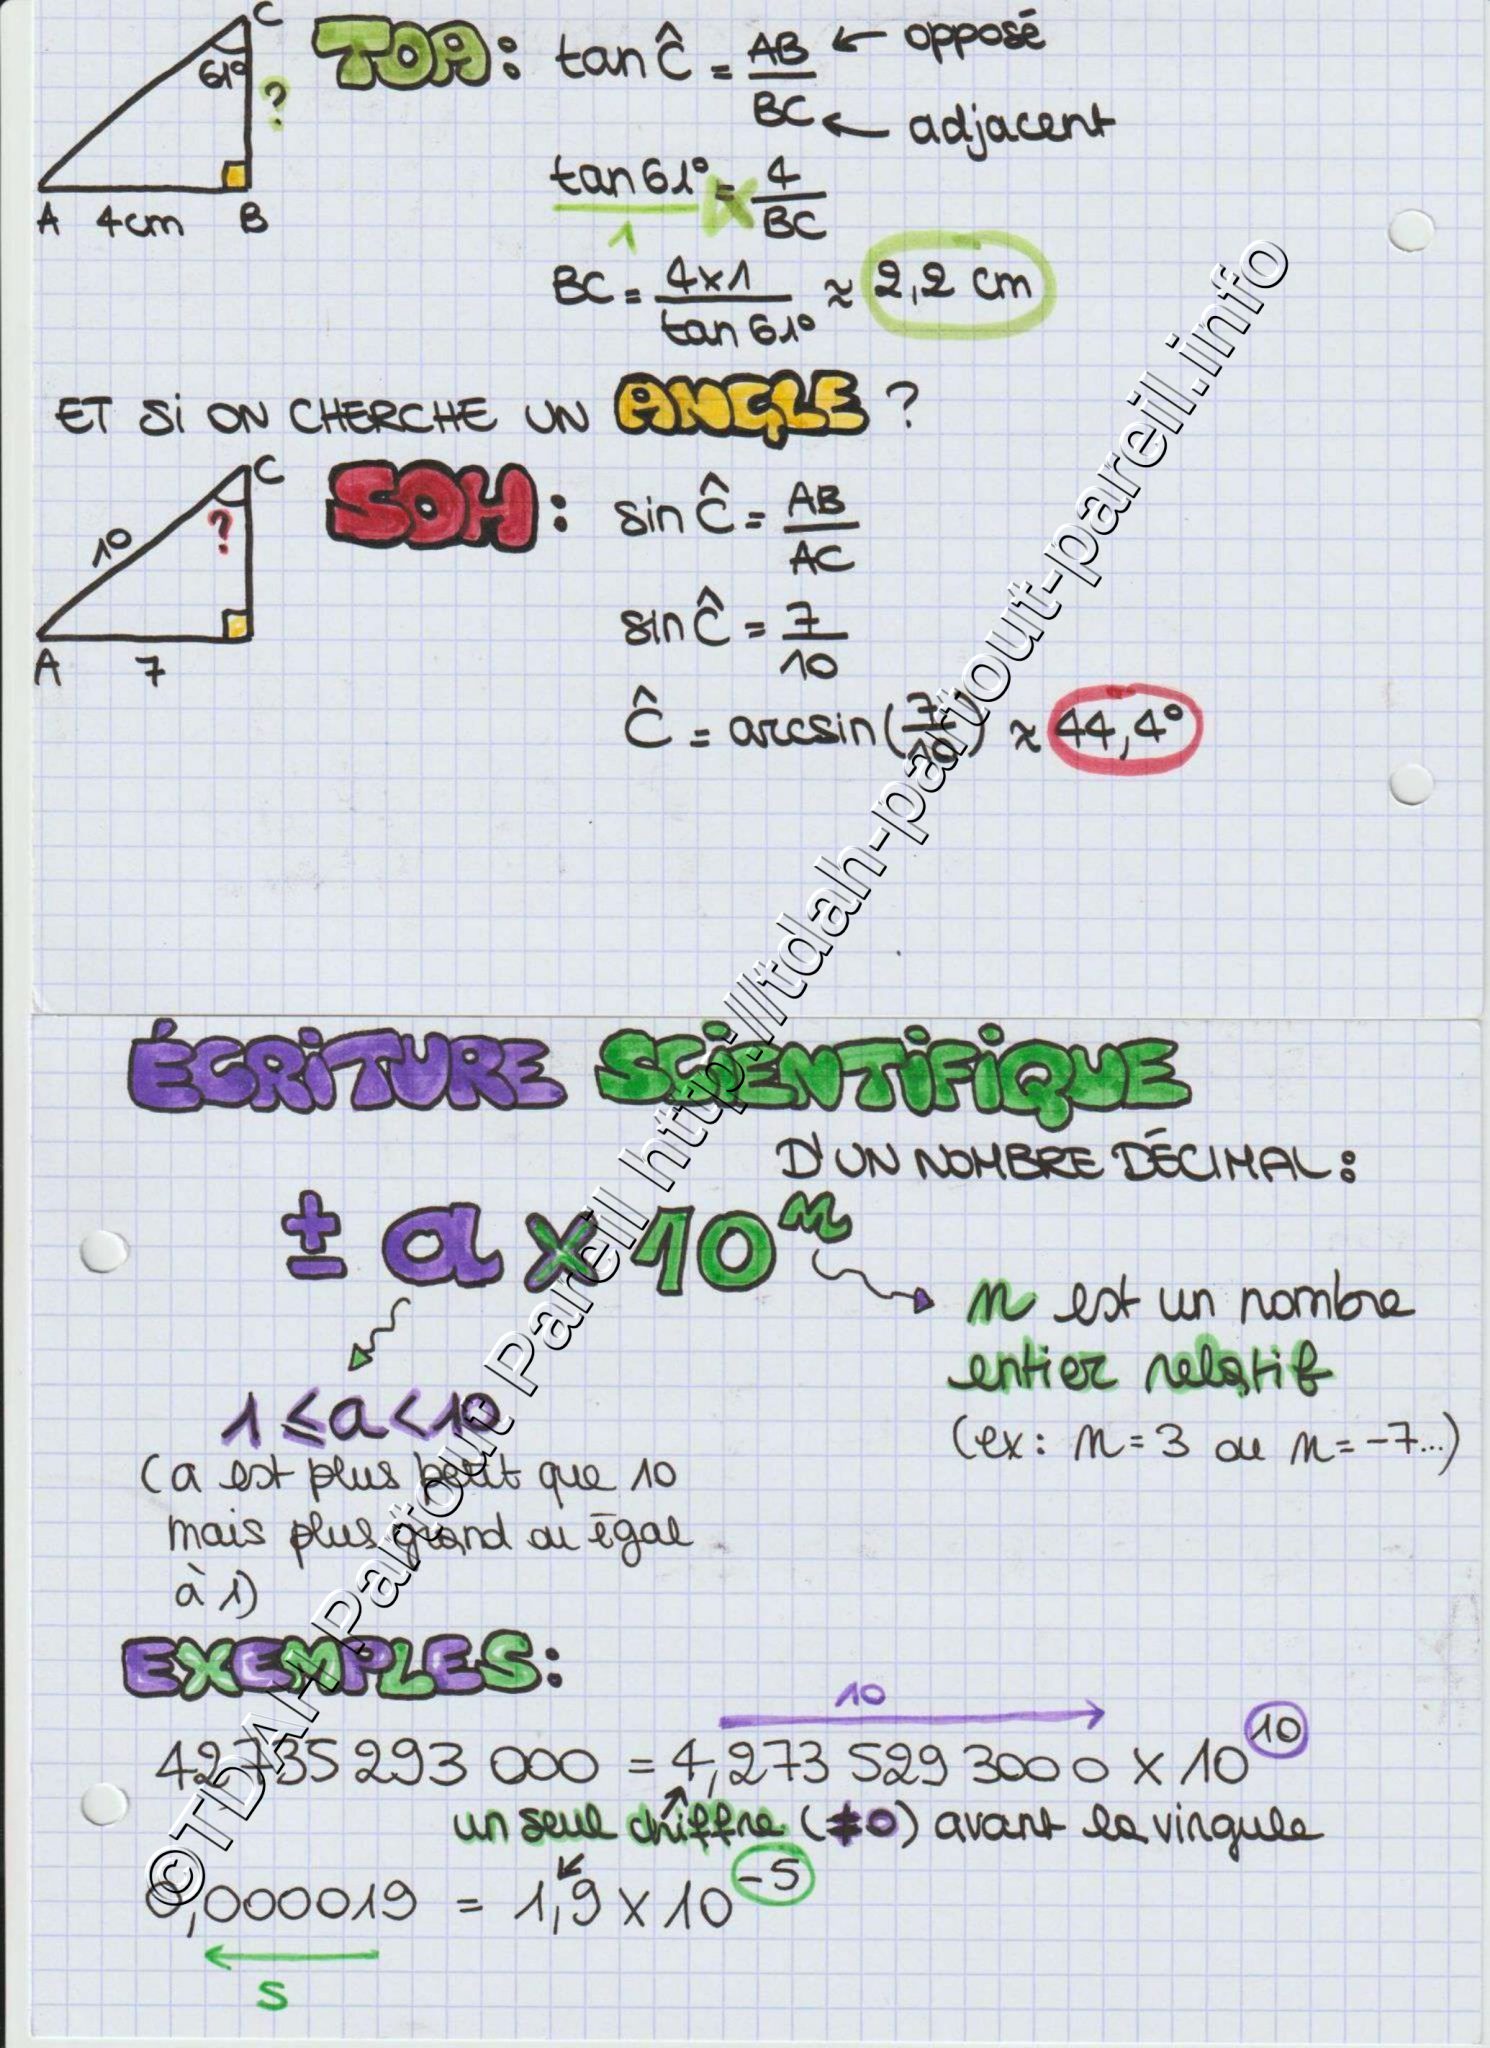 C
61°
?
A 4cm B
TOA: tan Ĉ = AB/BC ← opposé
← adjacent
tan 61° = 4/BC
1
BC = 4×1/tan 61° ≈ 2,2 cm
ET SI ON CHERCHE UN ANGLE ?
C
10
?
A 7
SOH: sin Ĉ = AB/AC
sin Ĉ = 7/10
Ĉ = arcsin(7/10) ≈ 44,4°
ÉCRITURE SCIENTIFIQUE
D'UN NOMBRE DÉCIMAL:
± a × 10ⁿ
n est un nombre
entier relatif
(ex: n = 3 ou n = -7...)
1 ≤ a < 10
(a est plus petit que 10
mais plus grand ou égal
à 1)
EXEMPLES:
10
42735 293 000 = 4,273 529 3000 × 10¹⁰
un seul chiffre (≠0) avant la virgule
0,000019 = 1,9 × 10⁻⁵
5
©TDAH Partout Pareil http://tdah-partout-pareil.info